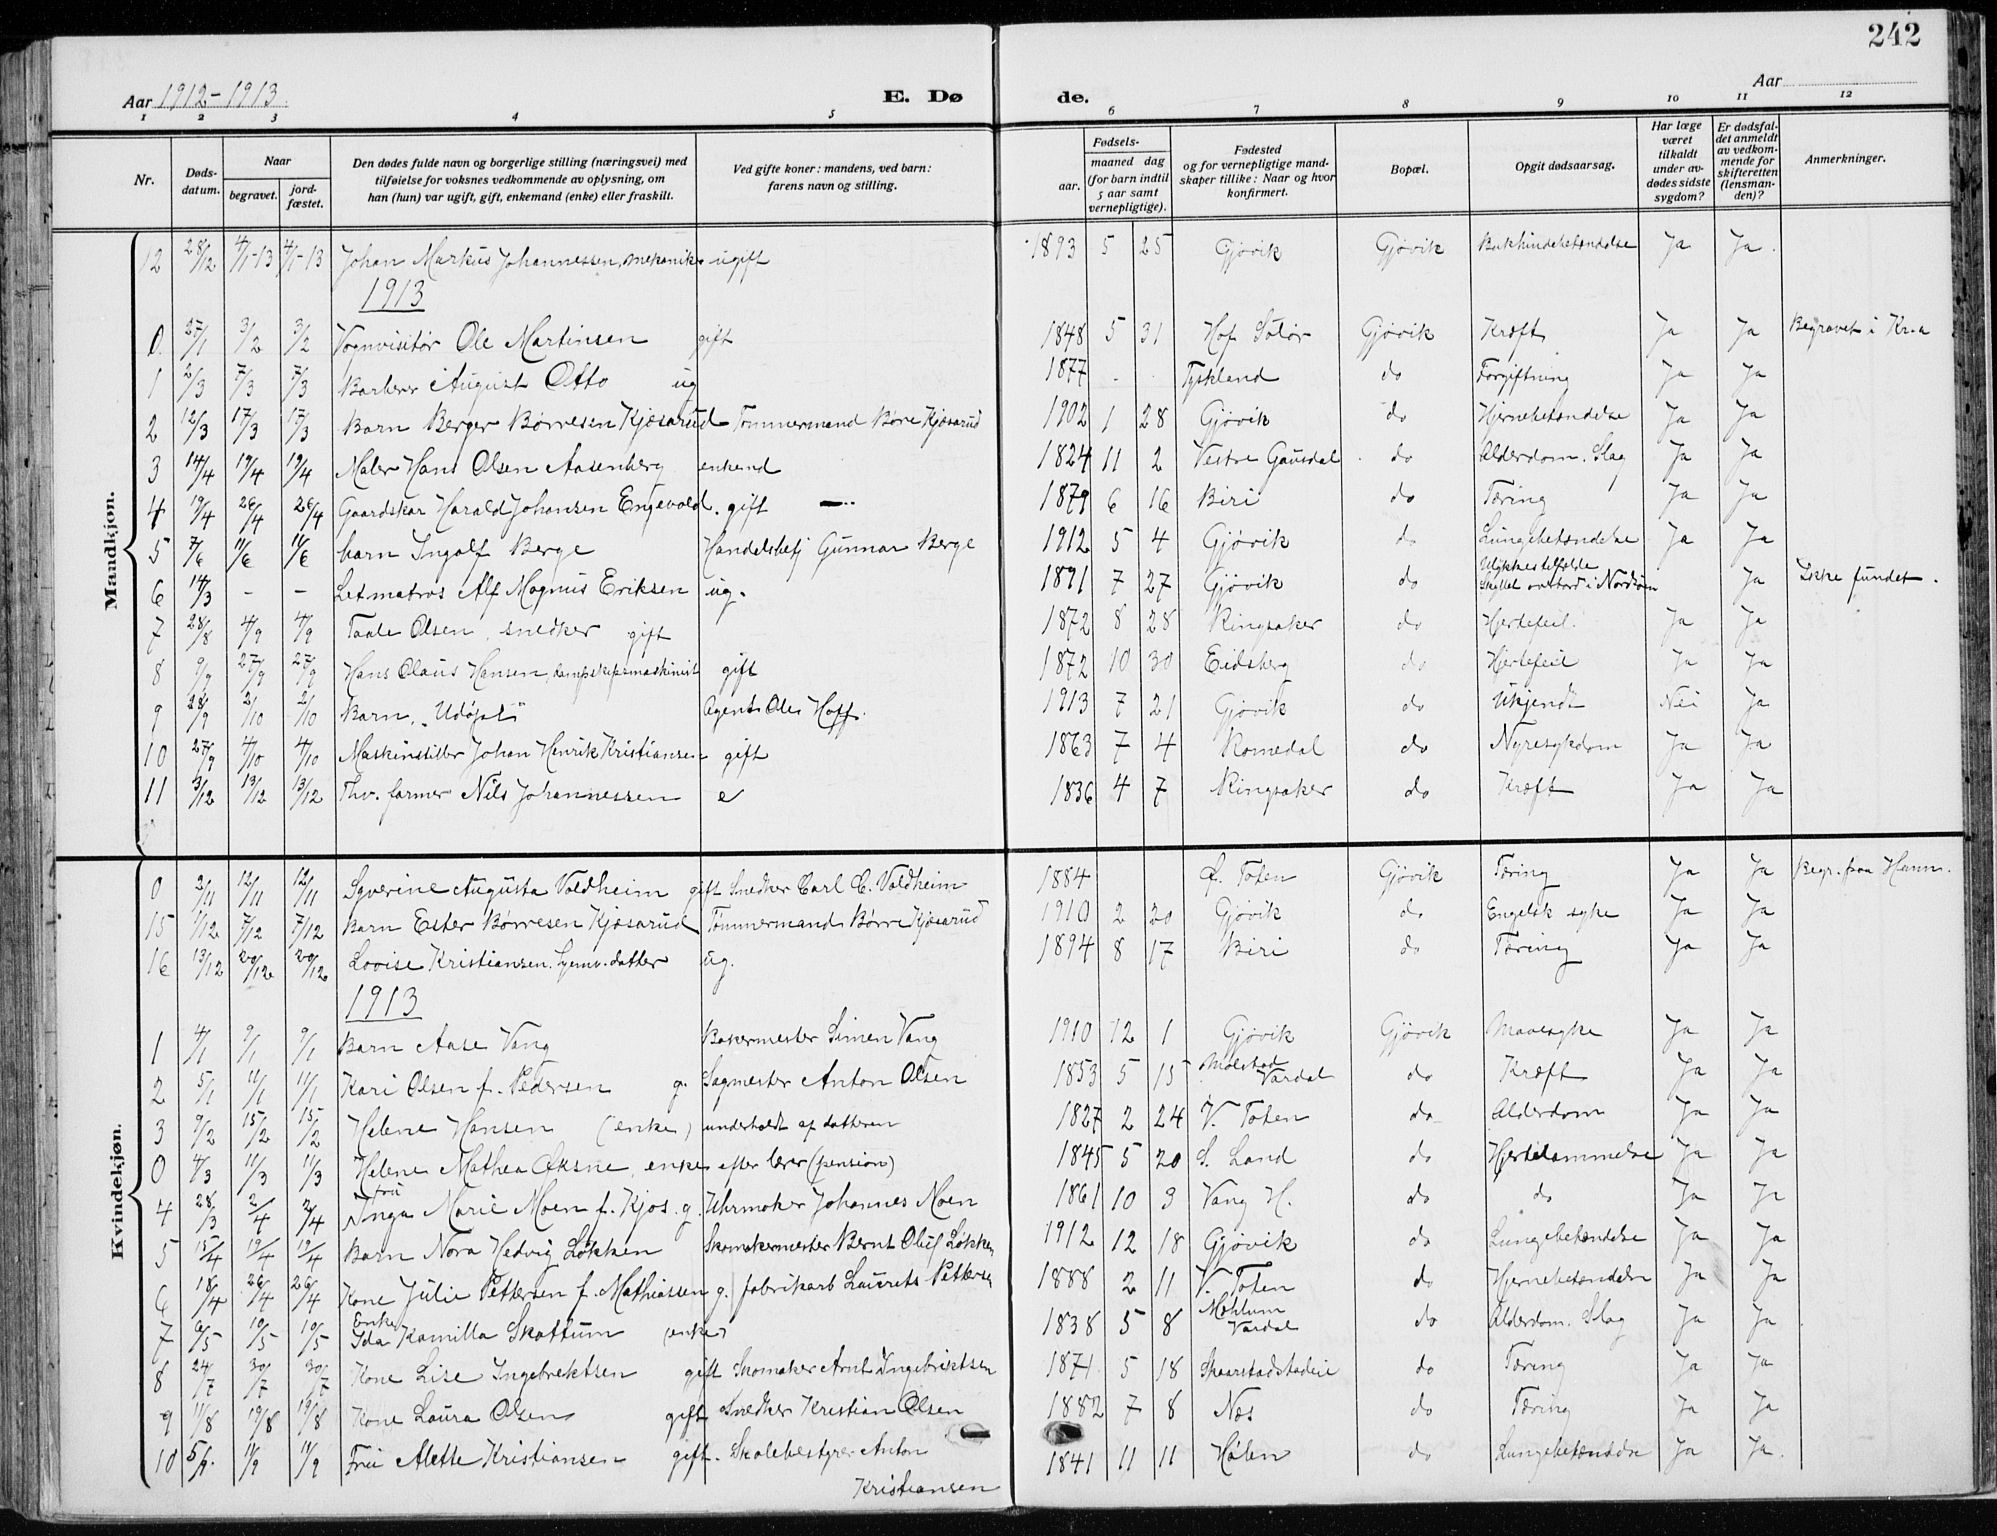 242
Aar 1912-1913. E. Dø de. Aar
1 2 3 4 5 6 7 8 9 10 11 12
Nr. Døds-datum. Naar begravet. jord-fæstet. Den dødes fulde navn og borgerlige stilling (næringsvei) med tilføielse for voksnes vedkommende av oplysning, om han (hun) var ugift, gift, enkemand (enke) eller fraskilt. Ved gifte koner: mandens, ved barn: farens navn og stilling. Fødsels- aar. maaned dag (for barn indtil 5 aar samt vernepligtige). Fødested og for vernepligtige mand-skaper tillike: Naar og hvor konfirmert. Bopæl. Opgit dødsaarsag. Har læge været tilkaldt under av-dødes sidste sygdom? Er dødsfal-det anmeldt av vedkom-mende for skifteretten (lensman-den)? Anmerkninger.
Mandkjøn.
12 28/12 4/1-13 4/1-13 Johan Markus Johannessen, mekaniker ugift 1893 5 25 Gjøvik Gjøvik Bukhindebetændelse Ja Ja.
1913
0. 27/1 3/2 3/2 Vognvisitør Ole Martinsen gift 1848 5 31 Hof Solør Gjøvik Kræft Ja Ja Begravet i Kr.a
1 2/3 7/3 7/3 Barberer August Otto ug 1877 . . Tyskland do Forgiftning Ja Ja
2 12/3 17/3 17/3 Barn Berger Børresen Kjøsarud Tømmermand Børe Kjøsarud 1902 1 28 Gjøvik do Hjernebetændelse Ja Ja
3 14/4 19/4 19/4 Maler Hans Olsen Aasenberg enkemd 1824 11 2 Vestre Gausdal do Alderdom. Slag Ja Ja
4 19/4 26/4 26/4 Gaardskar Harald Johansen Engevold. gift 1879 6 16 Biri do Tæring Ja Ja
5 7/6 11/6 11/6 barn Ingolf Berge Handelsbetj Gunnar Berge 1912 5 4 Gjøvik do Lungebetændelse Ja Ja
6 14/3 - - Letmatros Alf Magnus Eriksen ug. 1891 7 27 Gjøvik do Ulykkestilfælde Skyllet overbord i Nordsjøen Ja Ikke fundet.
7 28/8 4/9 4/9 Taale Olsen, snedker gift 1872 8 28 Ringsaker do Hjertefeil. Ja Ja
8 9/9 27/9 27/9 Hans Olaus Hansen, dampskipsmaskinist gift 1872 10 30 Eidsberg do Hjertefeil Ja Ja
9 28/9 2/10 2/10 Barn, "Udøpt" Agent Ole Hoff. 1913 7 21 Gjøvik do Ukjendt Nei Ja
10 27/9 4/10 4/10 Maskinstiller Johan Henrik Kristiansen gift 1863 7 4 Romedal do Nyresygdom Ja Ja
11 3/12 13/12 13/12 Thv. farmer Nils Johannessen e 1836 4 7 Ringsaker do Kræft Ja Ja
Kvindekjøn.
0 2/11 12/11 12/11 Syverine Augusta Voldheim gift Snedker Carl C. Voldheim 1884 Ø. Toten Gjøvik Tæring Ja Ja Begr. paa Hunn.
15 1/12 7/12 7/12 Barn Ester Børresen Kjøsarud Tømmermand Børre Kjøsarud 1910 2 20 Gjøvik do Engelsk syke Ja Ja
16 13/12 20/12 20/12 Lovise Kristiansen. Gjemv. datter ug. 1894 8 17 Biri do Tæring Ja Ja
1913
1 4/1 9/1 9/1 Barn Aase Vang Bakermester Simen Vang 1910 12 1 Gjøvik Gjøvik Mavesyke Ja Ja
2 5/1 11/1 11/1 Kari Olsen f. Pedersen g. Sagmester Anton Olsen 1853 5 15 Molstad Vardal do Kræft Ja Ja
3 9/2 15/2 15/2 Helene Hansen (enke) underholdt af datteren 1827 2 24 V. Toten do Alderdom Ja Ja
0 4/3 11/3 11/3 Helene Mathea Øksne, enke efter lærer (pension) 1845 5 20 S. Land do Hjertelammelse Ja Ja
4 28/3 2/4 2/4 Fru Inga Marie Moen f. Kjos. g. Uhrmaker Johannes Moen 1861 10 3 Vang H. do do Ja Ja
5 15/4 19/4 19/4 Barn Nora Hedvig Løkken Skomakermester Bernt Oluf Løkken 1912 12 18 Gjøvik do Lungebetændelse Ja Ja
6 18/4 26/4 26/4 Kone Julie Pettersen f. Mathiassen g. fabrikarb Laurets Pettersen 1888 2 11 V. Toten do Hjernebetændelse Ja Ja
7 6/5 10/5 10/5 Enke Ida Kamilla Skattum (enke) 1838 5 8 Mæhlum Vardal do Alderdom. Slag Ja Ja
8 24/7 30/7 30/7 Kone Lise Ingebrektsen gift Skomaker Arnt Ingebriktsen 1871 5 18 Skaarstadstadeie do Tæring Ja Ja
9 11/8 19/8 19/8 Kone Laura Olsen gift Snedker Kristian Olsen 1882 7 8 Nes do Tæring Ja Ja
10 5/9. 11/9 11/9 Frü Alette Kristiansen gift. Skolebestyrer Anton 1841 11 11 Hølen do Lungebetændelse Ja Ja.
Kristiansen